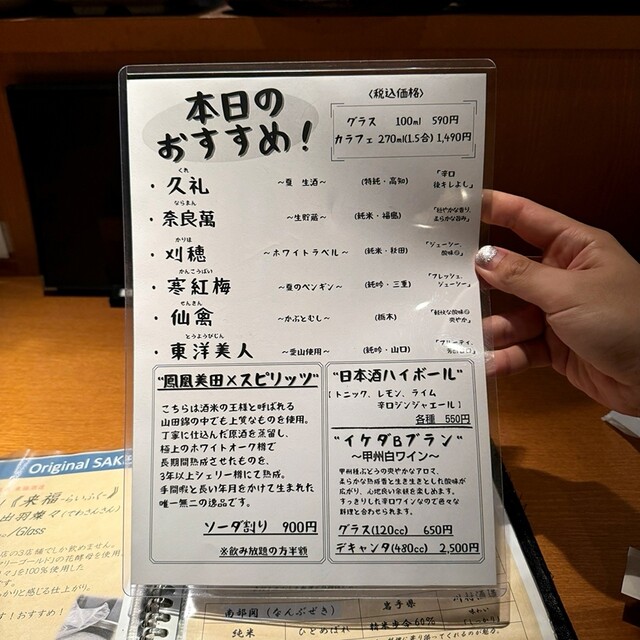 本日の
おすすめ！
〈税込価格〉
グラス 100ml 590円
カラフェ 270ml(1.5合) 1,490円
くれ
・久礼 ～夏 生酒～ (特純・高知) 「辛口 後キレよし」
ならまん
・奈良萬 ～生貯蔵～ (純米・福島) 「穏やかな香り、柔らかな旨み」
かりほ
・刈穂 ～ホワイトラベル～ (純吟・秋田) 「ジューシー、酸味◎」
かんこうばい
・寒紅梅 ～夏のペンギン～ (純吟・三重) 「フレッシュ、ジューシー」
せんきん
・仙禽 ～かぶとむし～ (栃木) 「軽快な酸味◎ 爽やか」
とうようびじん
・東洋美人 ～愛山使用～ (純吟・山口) 「フルーティ、
"鳳凰美田×スピリッツ"
こちらは酒米の王様と呼ばれる
山田錦の中でも上質なものを使用。
丁寧に仕込んだ原酒を蒸留し、
極上のホワイトオーク樽で
長期間熟成させたものを、
3年以上シェリー樽にて熟成。
手間暇と長い年月をかけて生まれた
唯一無二の逸品です。
ソーダ割り 900円
※飲み放題の方半額
"日本酒ハイボール"
【トニック、レモン、ライム
辛口ジンジャエール】
各種 550円
"イケダBブラン"
～甲州白ワイン～
甲州種ぶどうの爽やかなアロマ、
柔らかな熟成香と生き生きとした酸味が
広がり、心地良い余韻を楽しめます。
すっきりした辛口ワインなので色々な
料理と合わせられます。
グラス(120cc) 650円
デキャンタ(480cc) 2,500円
Original SAKE
《来福-らいふく-》
出羽燦々(でわさんさん)
/Glass
店の3店舗でしか飲めません。
リーゴールド」の花酵母を使用。
」を100%使用した
かりと感じる仕上がり。
す！おすすめ！
南部関(なんぶぜき) 岩手県
純米 ひとめぼれ 精米歩合60%